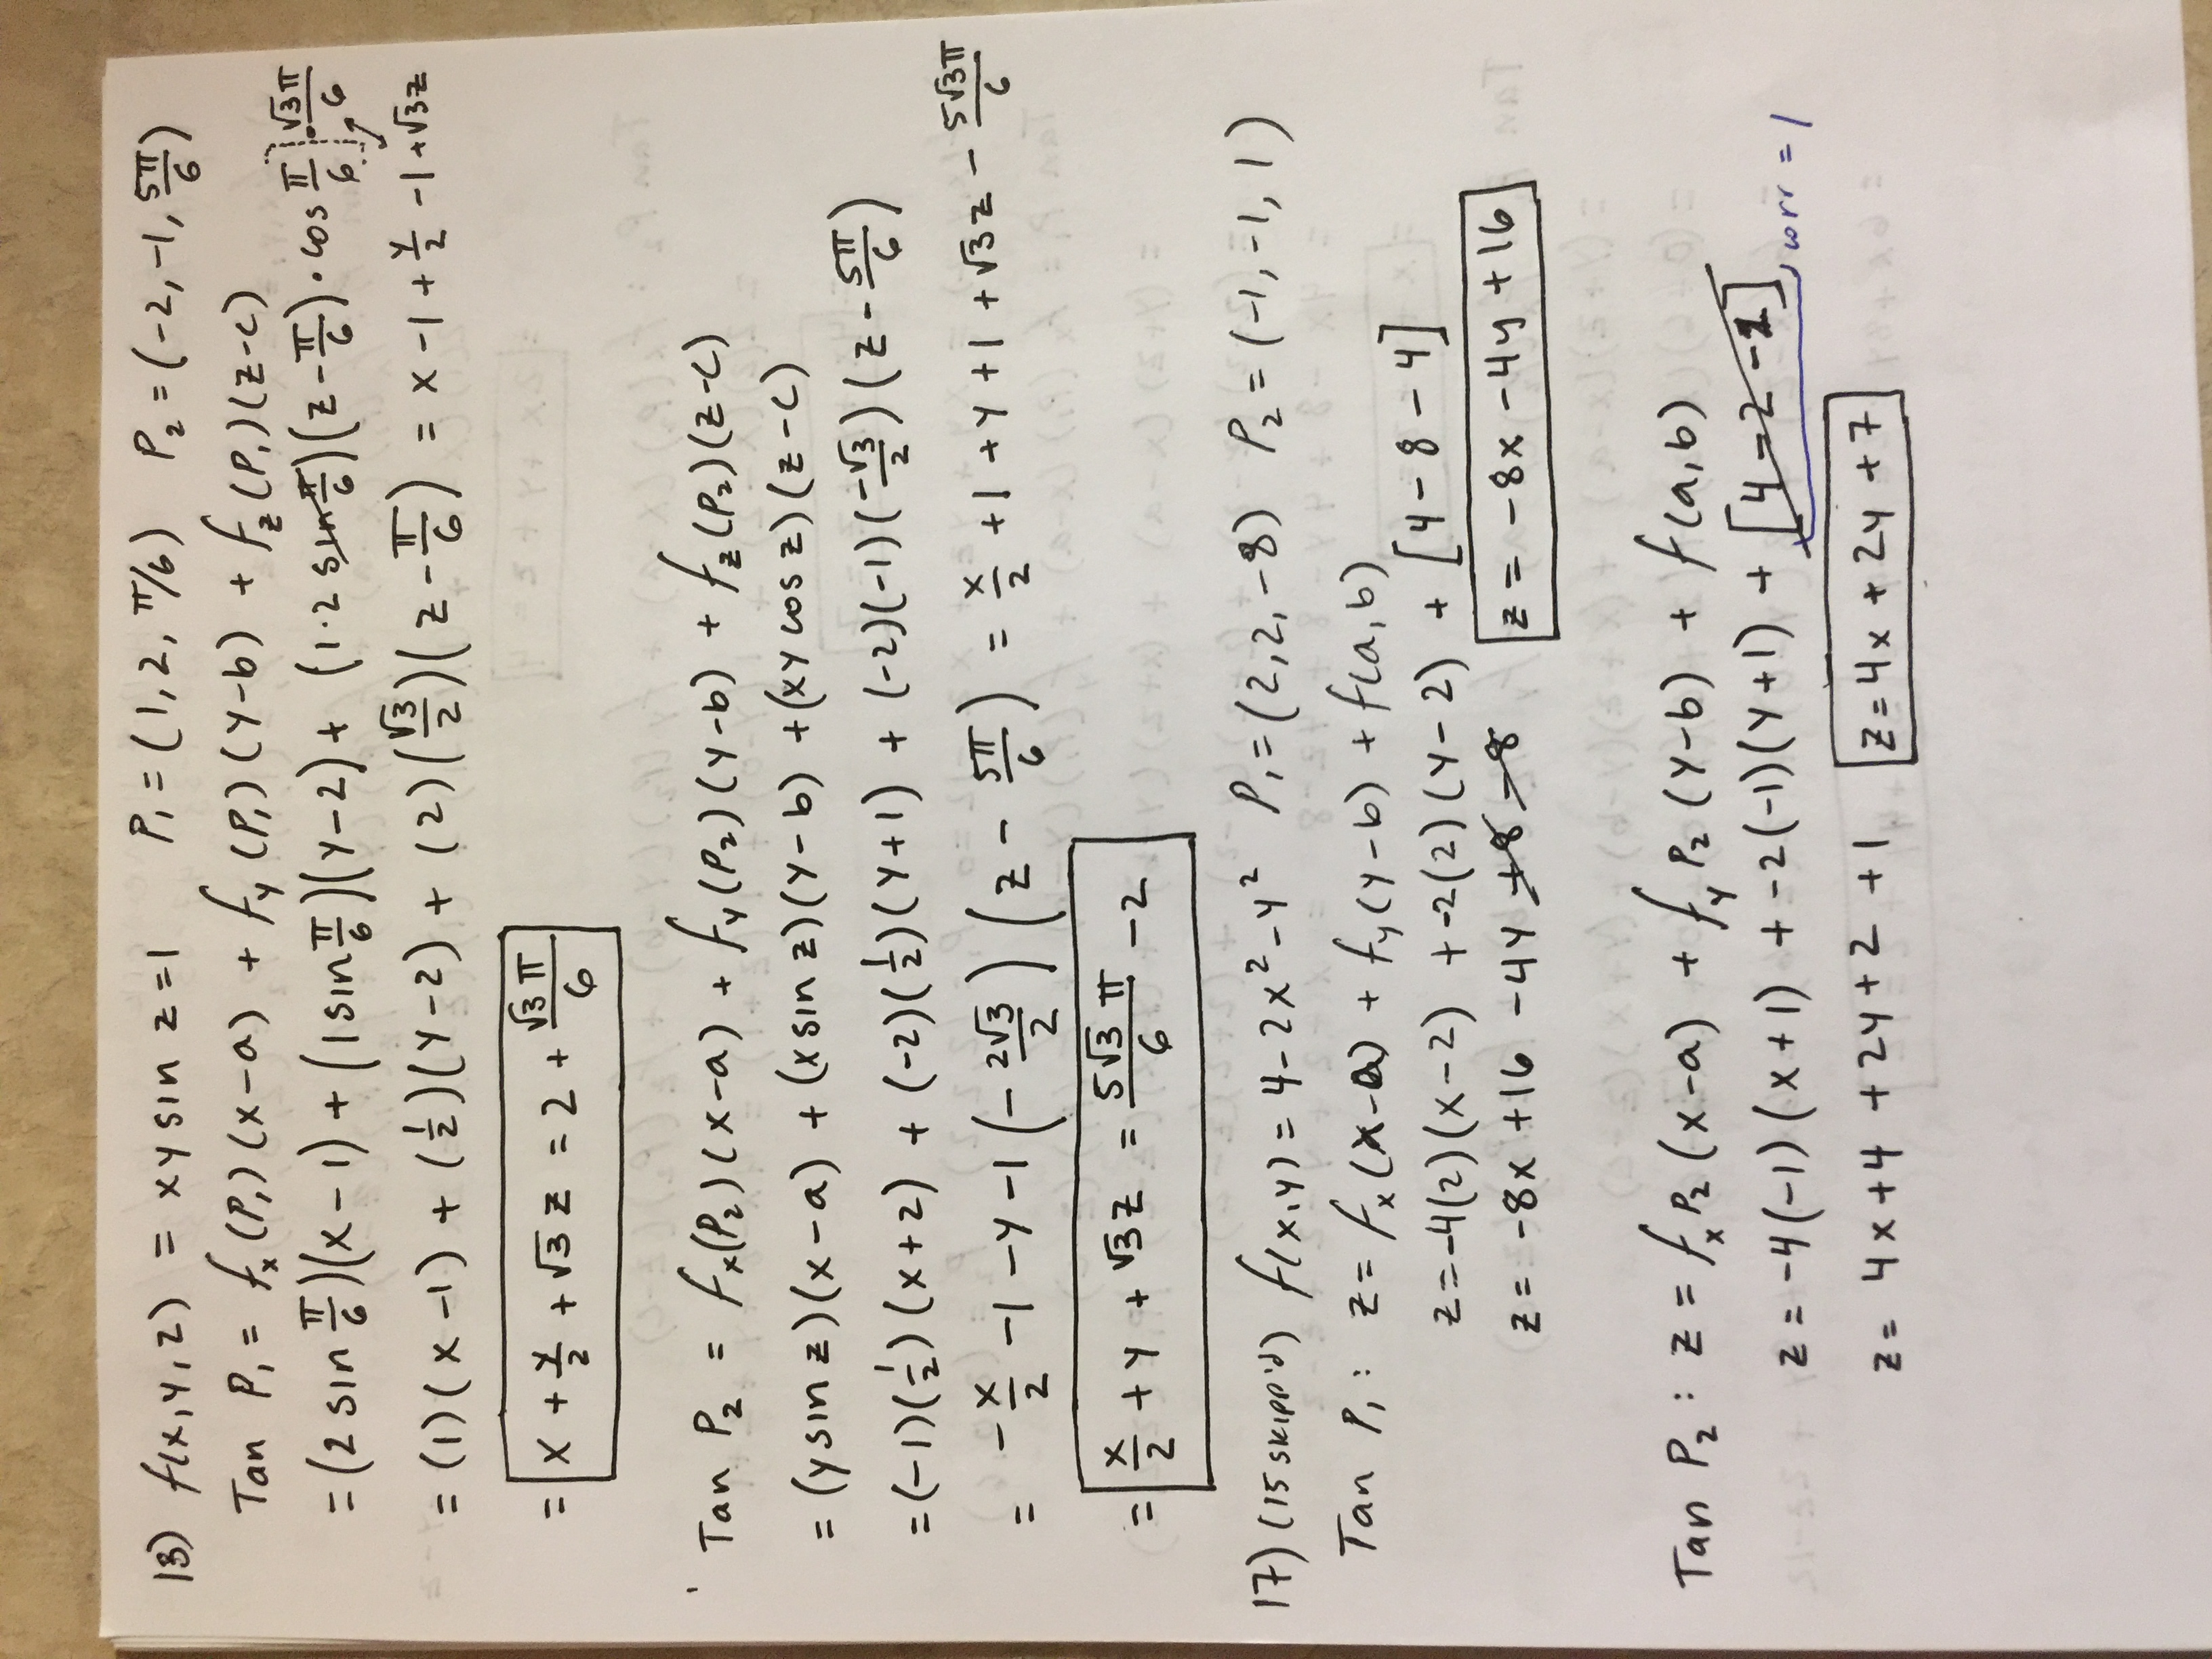 13) f(x,y,z) = xy sin z = 1 P₁ = (1, 2, π/6) P₂ = (-2, -1, 5π/6)
Tan P₁ = fₓ(P₁)(x-a) + f_y(P₁)(y-b) + f_z(P₁)(z-c)
= (2 sin π/6)(x-1) + (1 sin π/6)(y-2) + (1·2 sin π/6)(z-π/6)·cos π/6 · √3π/6
= (1)(x-1) + (1/2)(y-2) + (2)(√3/2)(z-π/6) = x-1+y/2-1+√3z
= x + y/2 + √3 z = 2 + √3π/6
Tan P₂ = fₓ(P₂)(x-a) + f_y(P₂)(y-b) + f_z(P₂)(z-c)
= (y sin z)(x-a) + (x sin z)(y-b) + (xy cos z)(z-c)
= (-1)(1/2)(x+2) + (-2)(1/2)(y+1) + (-2)(-1)(-√3/2)(z-5π/6)
= -x/2 -1 -y -1 (-2√3/2)(z - 5π/6) = x/2 +1 +y +1 +√3z - 5√3π/6
= x/2 + y + √3z = 5√3π/6 - 2
17) (15 skipp'd) f(x,y) = 4-2x²-y² P₁ = (2,2,-8) P₂ = (-1,-1,1)
Tan P₁ : z = fₓ(x-a) + f_y(y-b) + f(a,b)
z = -4(2)(x-2) + -2(2)(y-2) + [4-8-4]
z = -8x +16 -4y +8 -8 z = -8x -4y +16
Tan P₂ : z = fₓ P₂ (x-a) + f_y P₂ (y-b) + f(a,b)
z = -4(-1)(x+1) + -2(-1)(y+1) + [4-2-1] corr = 1
z = 4x+4 +2y+2 +1 z = 4x + 2y +7